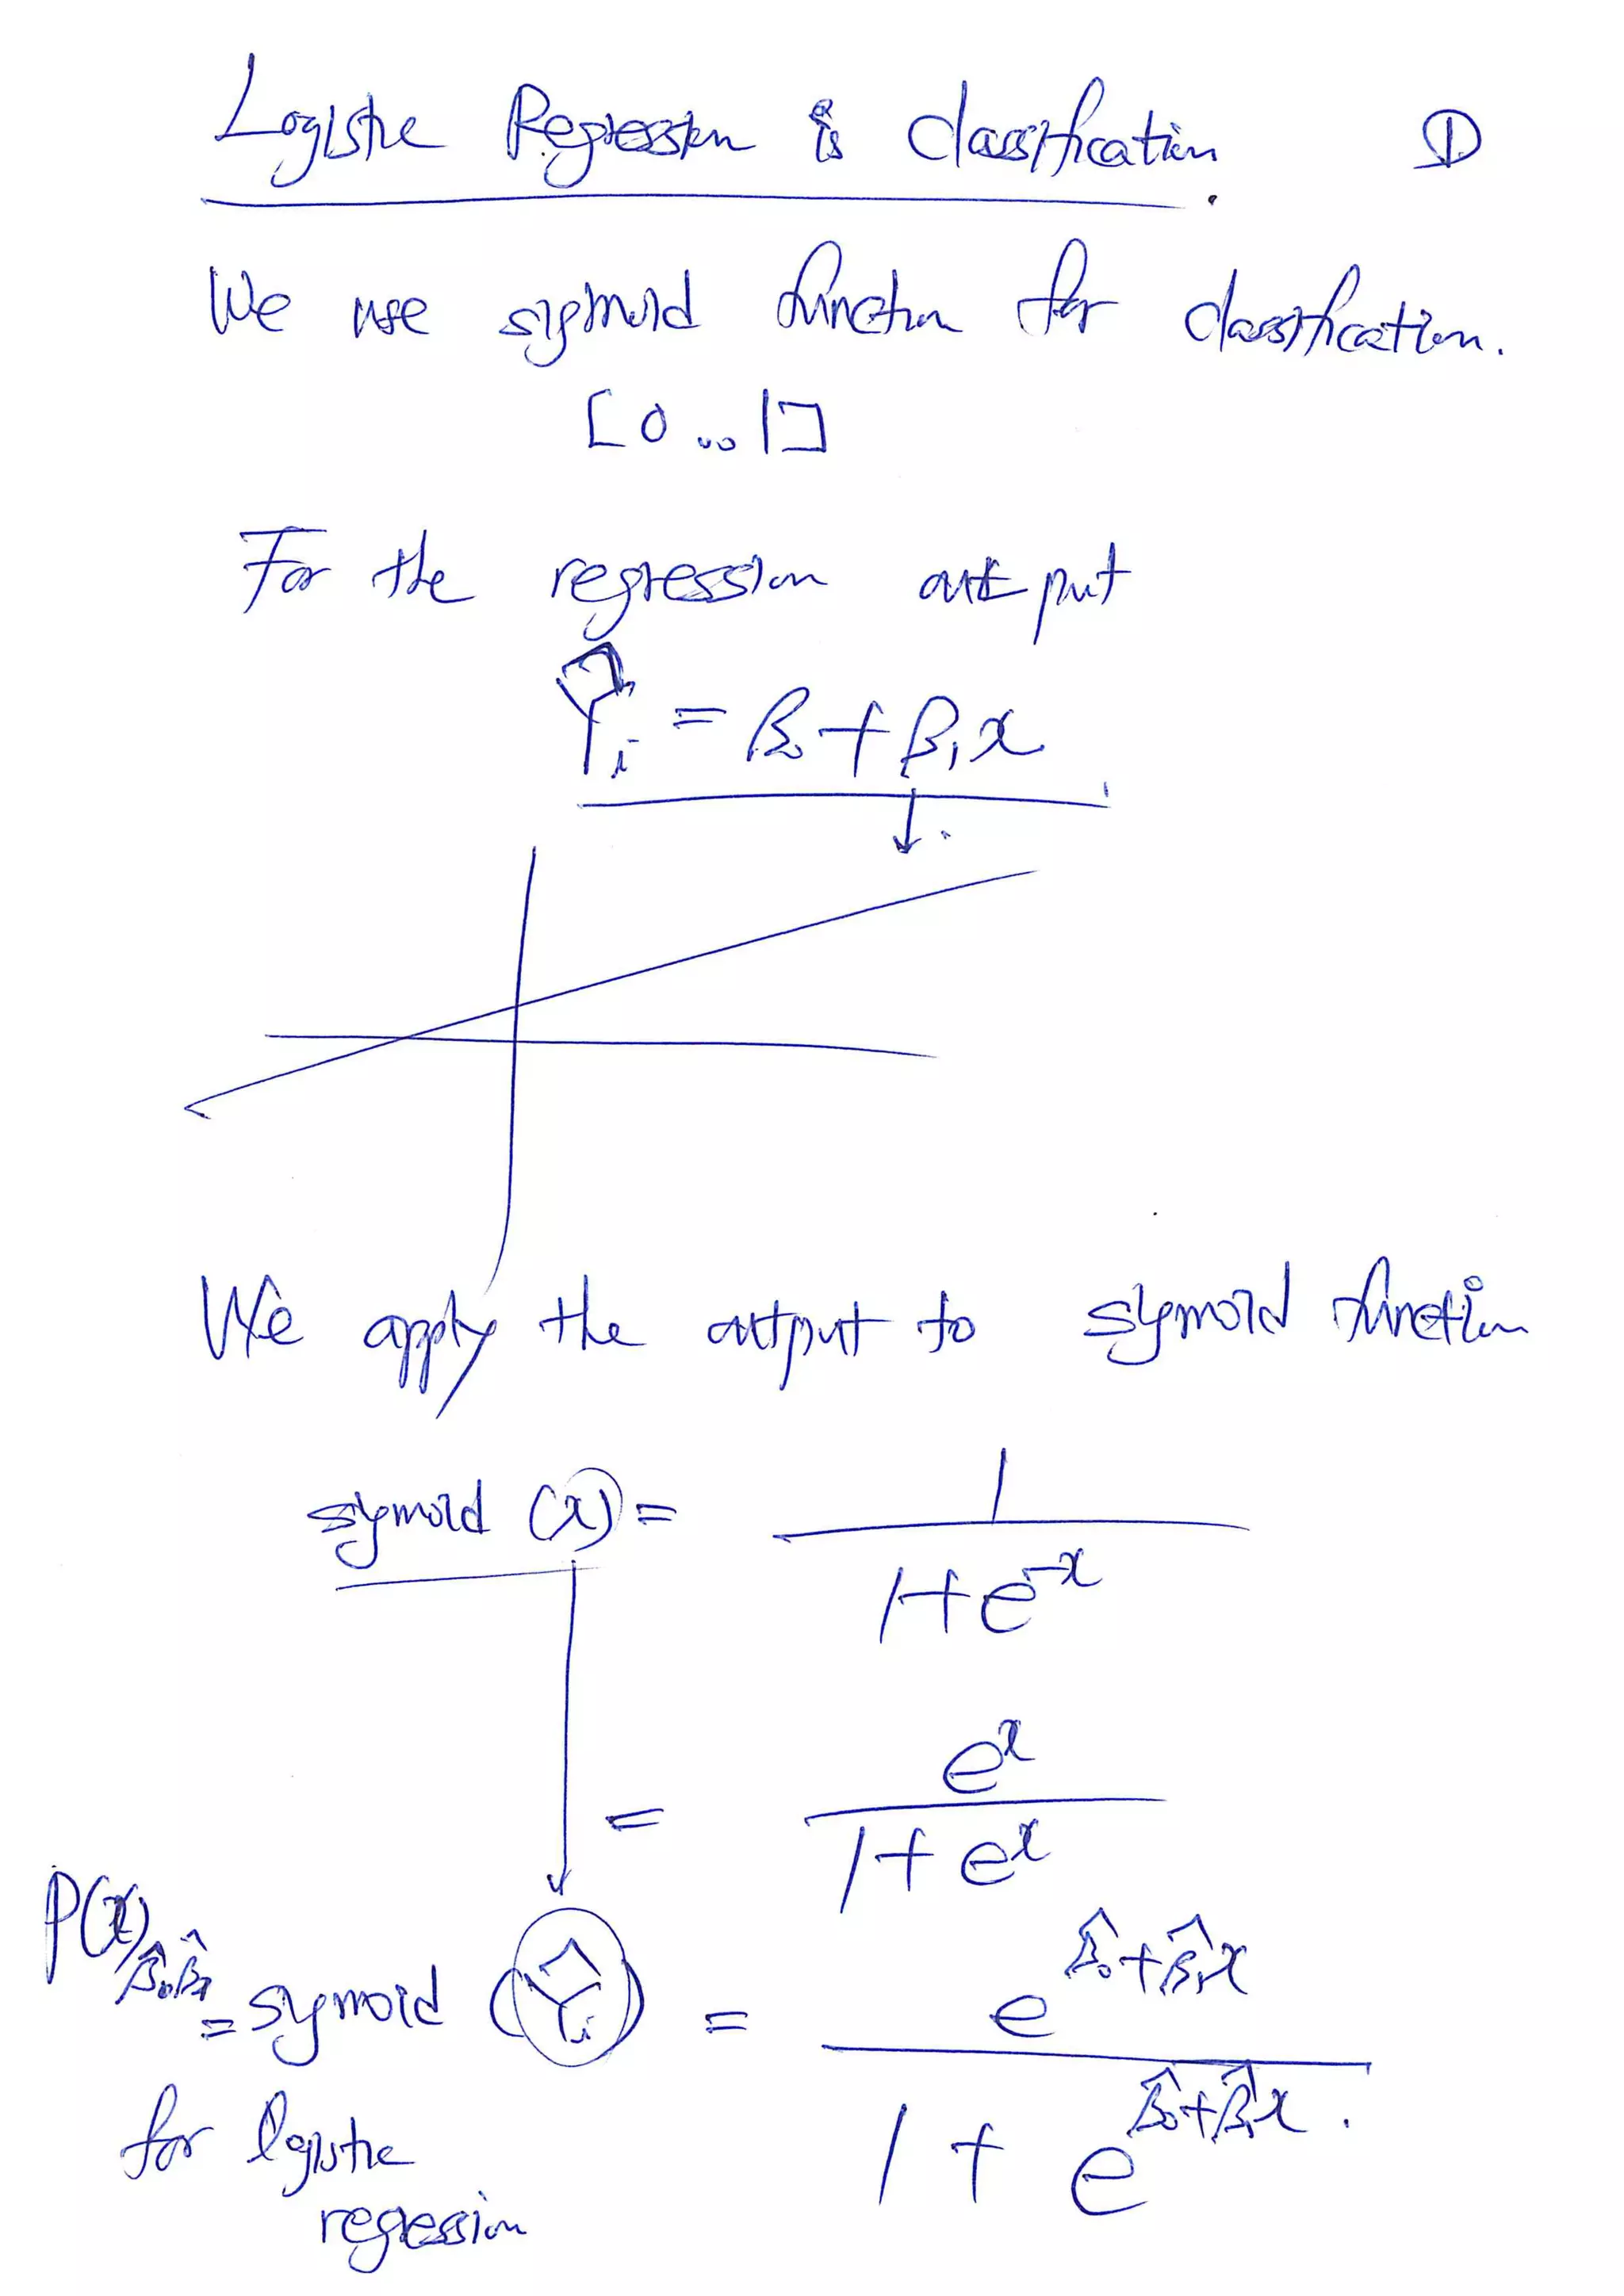 Logistic Regression is classification. ①
We use sigmoid function for classification.
[0...1]
For the regression output
Ŷi = β0 + β1x
We apply the output to sigmoid function
sigmoid (x) = 1 / 1+e^-x
= e^x / 1+e^x
P(x) β̂0 β̂1 = sigmoid (Ŷi) = e^β̂0+β̂1x / 1 + e^β̂0+β̂1x.
for logistic
regression